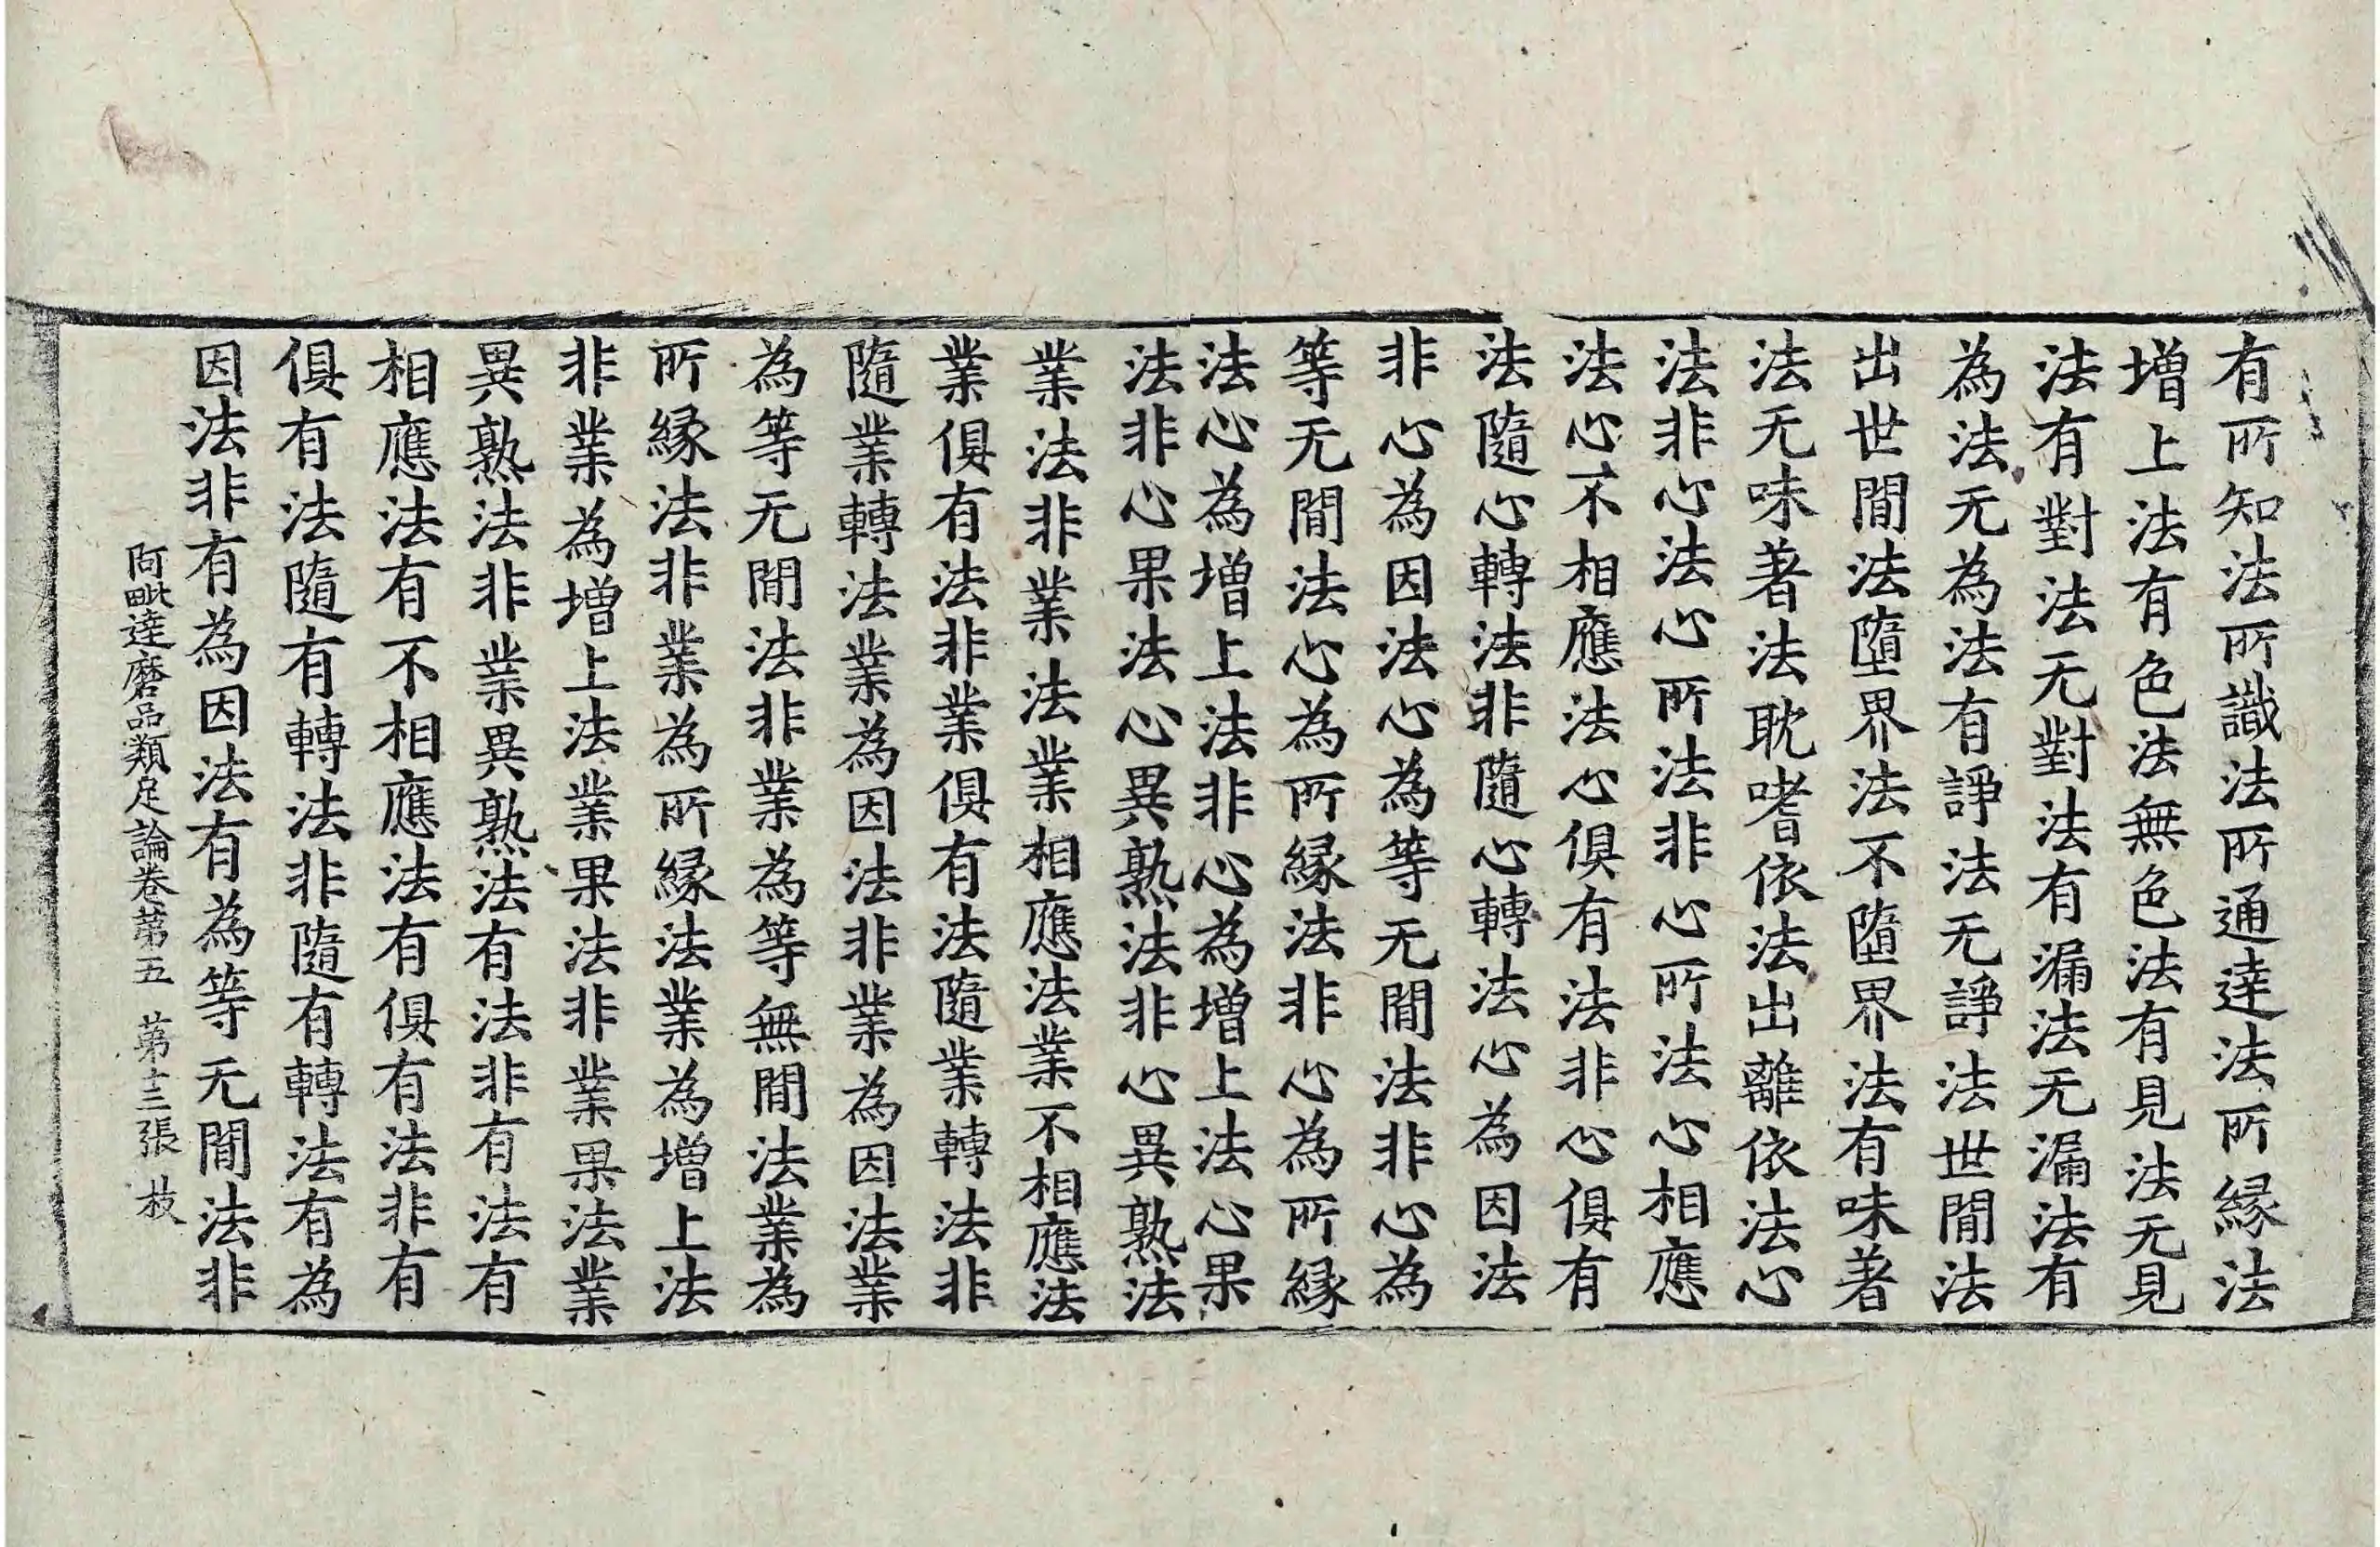 有所知法所識法所通達法所縁法
増上法有色法無色法有見法无見
法有對法无對法有漏法无漏法有
為法无為法有諍法无諍法世間法
出世間法墮界法不墮界法有味著
法无味著法耽嗜依法出離依法心
法非心法心所法非心所法心相應
法心不相應法心俱有法非心俱有
法隨心轉法非隨心轉法心為因法
非心為因法心為等无間法非心為
等无間法心為所縁法非心為所縁
法心為增上法非心為增上法心果
法非心果法心異熟法非心異熟法
業法非業法業相應法業不相應法
業俱有法非業俱有法隨業轉法非
隨業轉法業為因法非業為因法業
為等无間法非業為等無間法業為
所縁法非業為所縁法業為增上法
非業為增上法業果法非業果法業
異熟法非業異熟法有法非有法有
相應法有不相應法有俱有法非有
俱有法隨有轉法非隨有轉法有為
因法非有為因法有為等无間法非
阿毗達磨品類足論卷苐五 苐十三張 枝